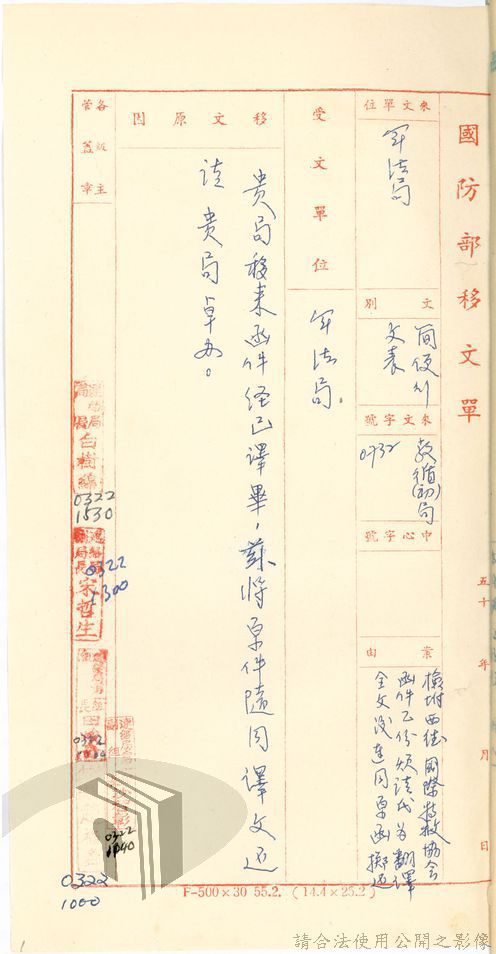 國防部移文單
五十 年 月 日
來文單位
軍法局
文別
簡便行文表
來文字號
教循(初)局
0732
中心字號
案由
檢附西德國際特赦協會
函件乙份煩請代為翻譯
全文後連同原函擲還
受文單位
軍法局。
移文原因
貴局移來函件經已譯畢,茲將原件隨同譯文還
請 貴局卓办。
各級主管蓋章
連絡局
副局長
白樹綿
0322
1530
連絡局
副局長
宋哲生
0322
1300
0322
1040
0322
1000
F-500×30 55.2. (14.4×25.2)
1
請合法使用公開之影像